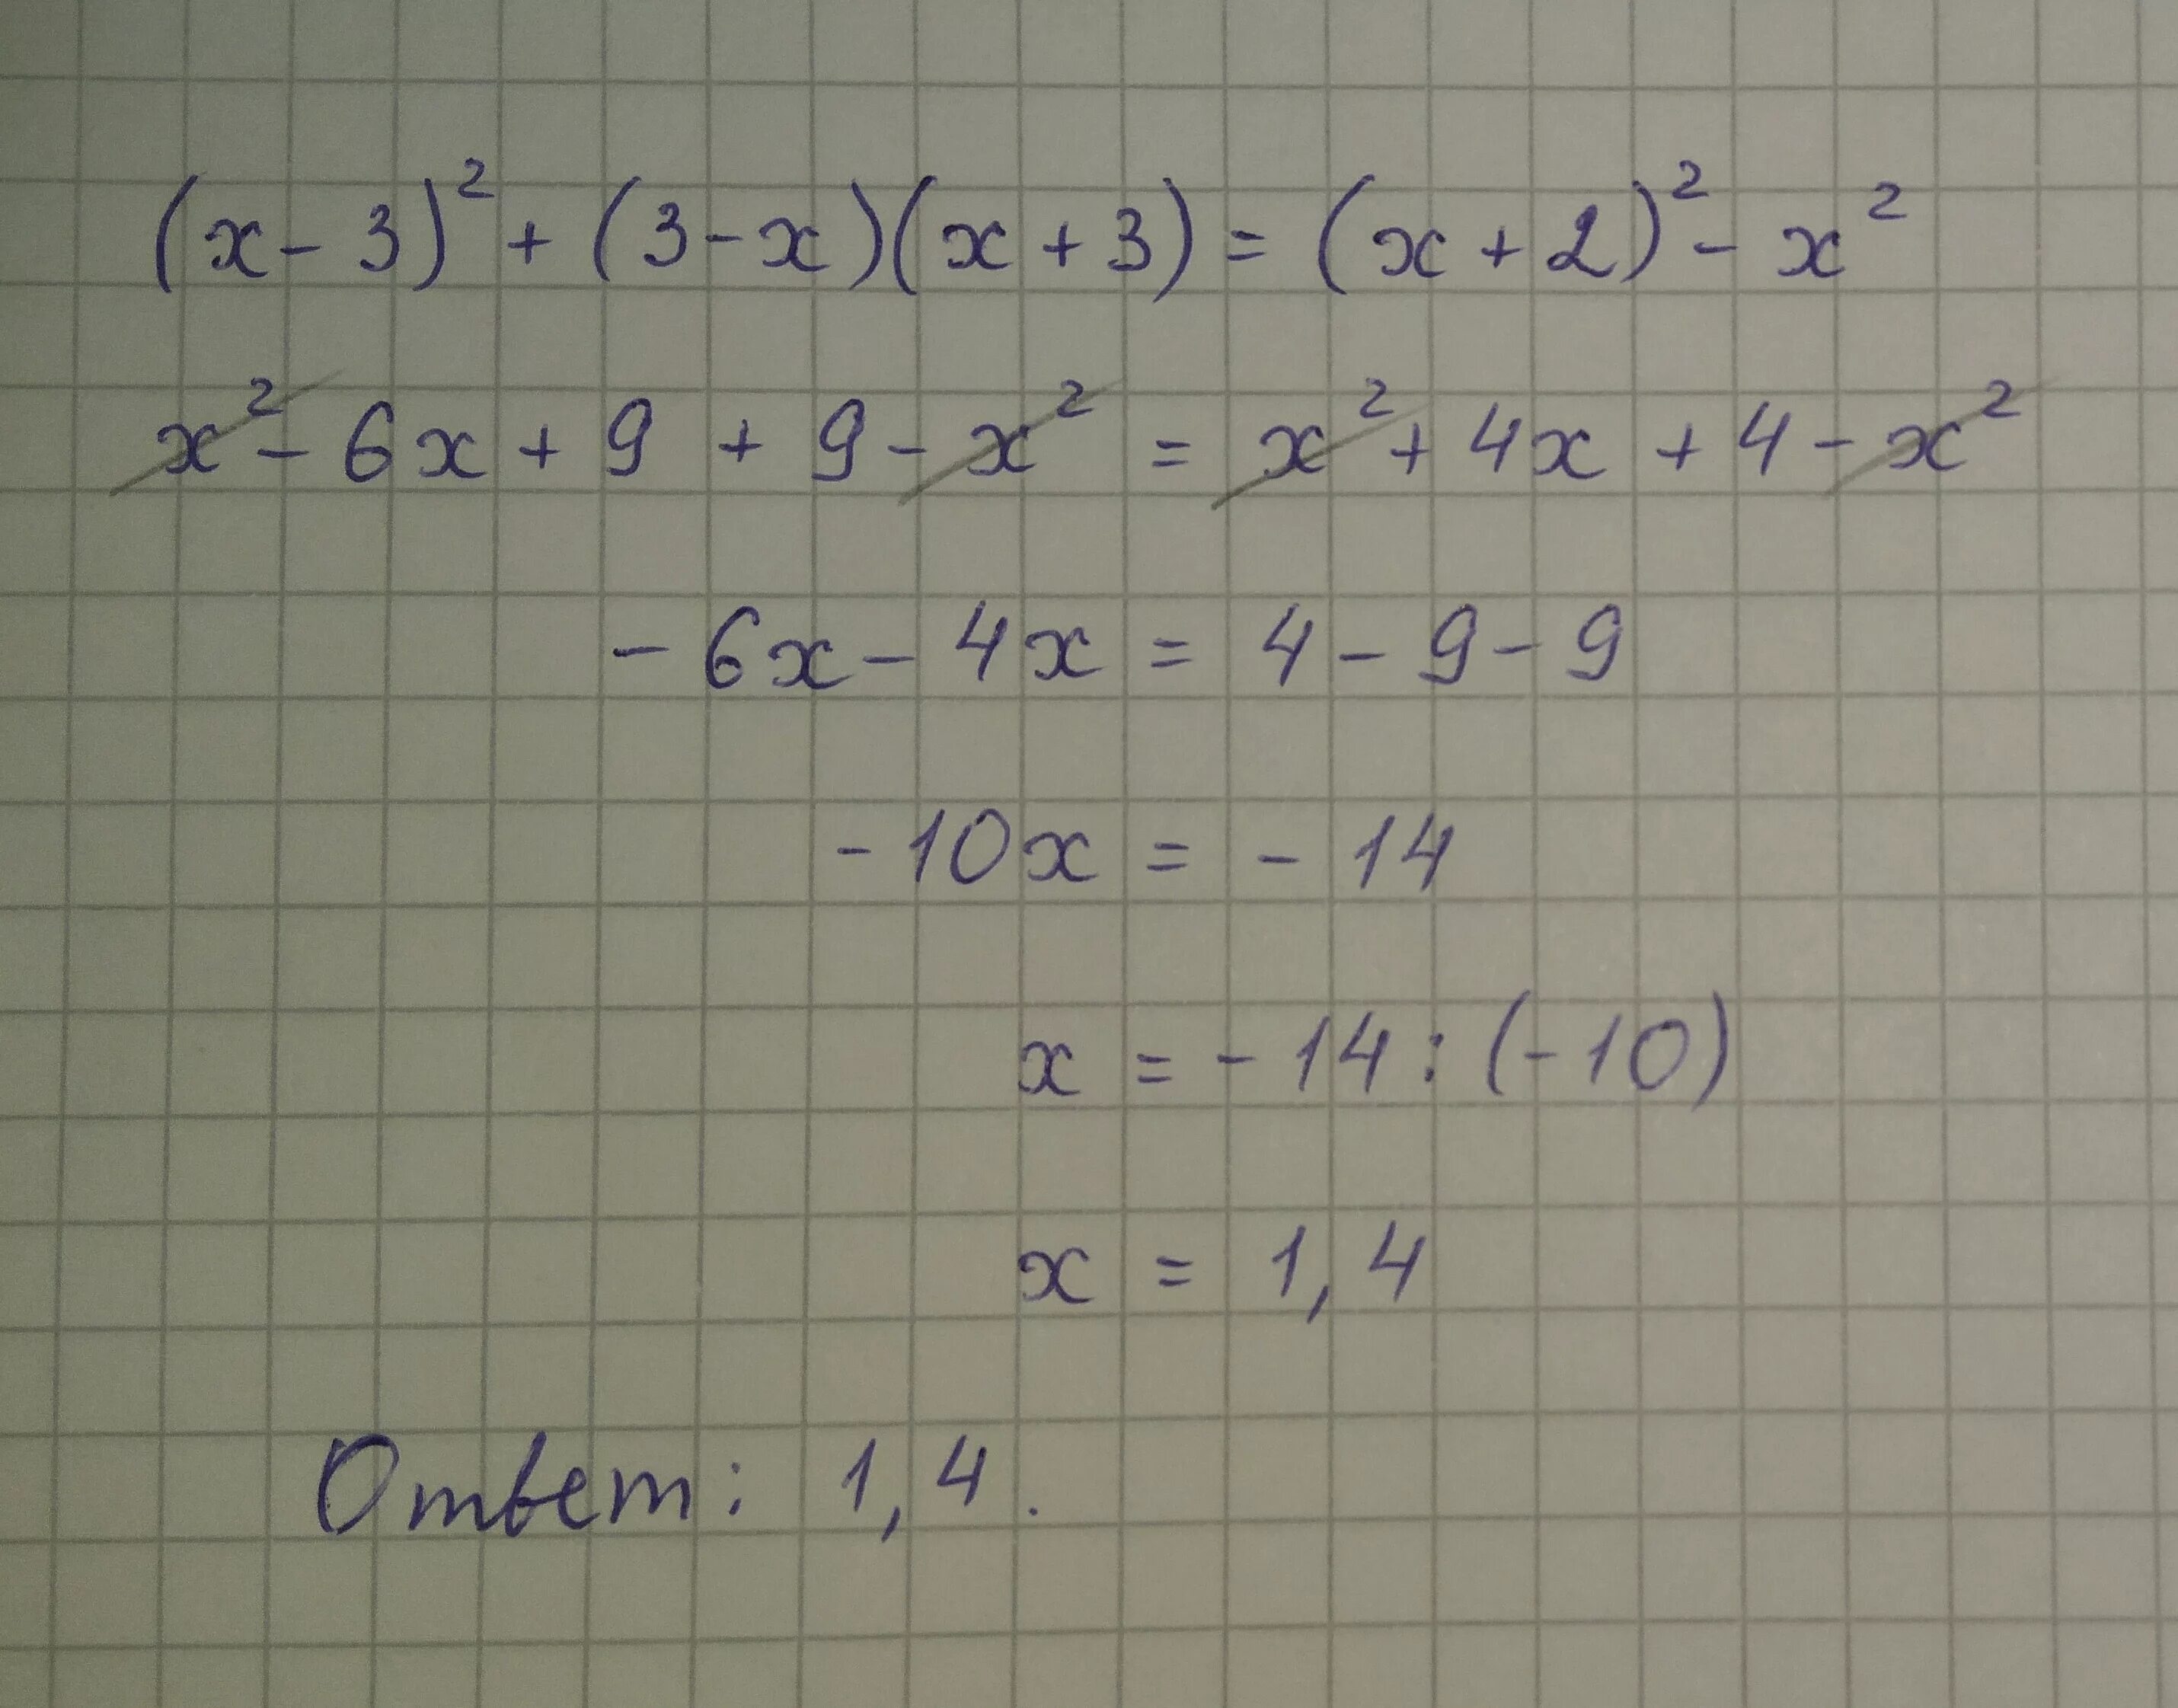 (x-3)² + (3-x)(x+3) = (x+2)² - x²
x² - 6x + 9 + 9 - x² = x² + 4x + 4 - x²
-6x - 4x = 4 - 9 - 9
-10x = -14
x = -14 : (-10)
x = 1,4
Ответ: 1,4.